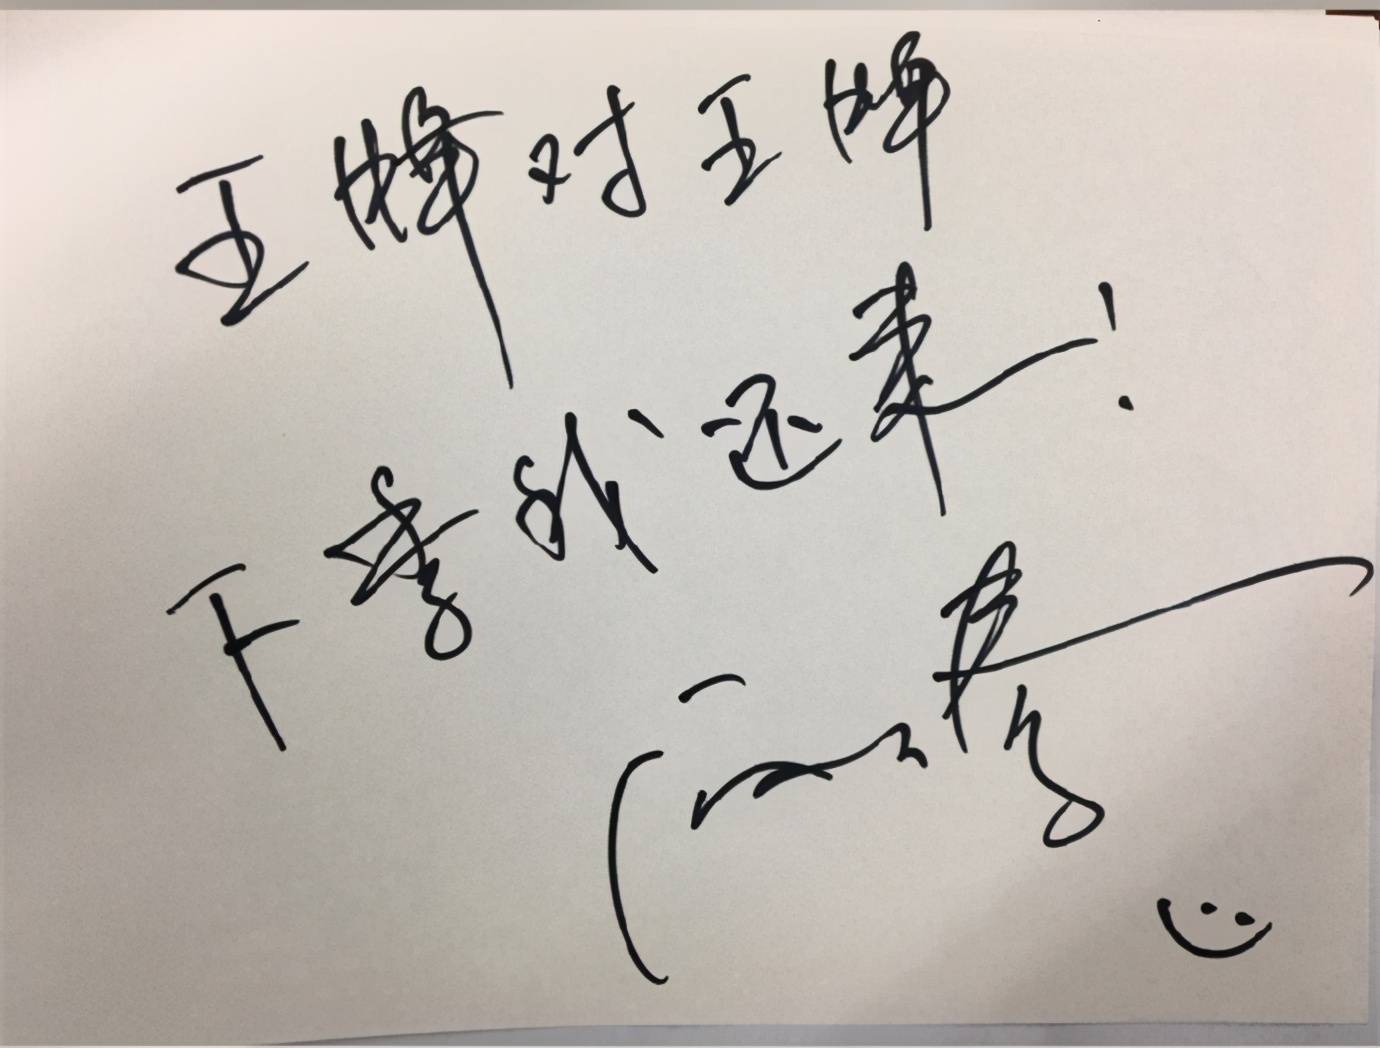 王牌对王牌
下季我还来！